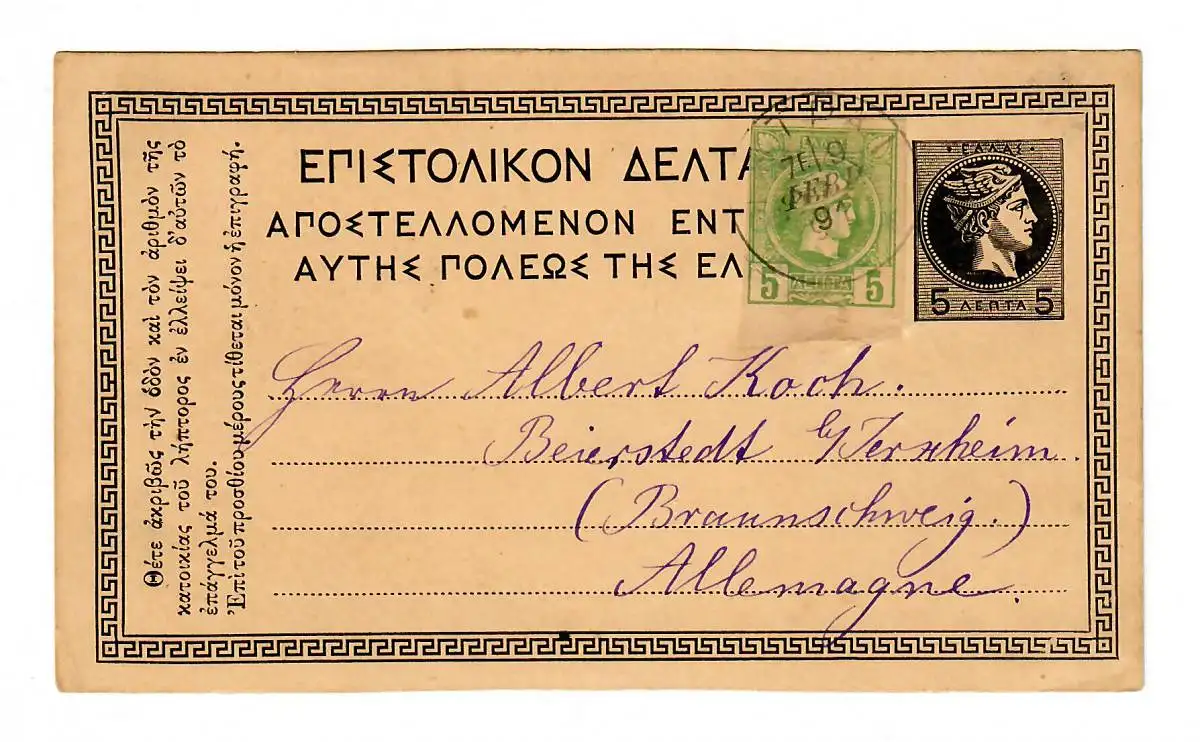 Θέτε ἀκριβῶς τὴν ὁδὸν καὶ τὸν ἀριθμὸν τῆς
κατοικίας τοῦ λήπτορος ἐν ἐλλείψει δ' αὐτῶν τὸ
ἐπάγγελμά του.
Ἐπὶ τοῦ προσθίου μέρους τίθεται μόνον ἡ ἐπιγραφή.
ΕΠΙΣΤΟΛΙΚΟΝ ΔΕΛΤΑ
ΑΠΟΣΤΕΛΛΟΜΕΝΟΝ ΕΝΤ
ΑΥΤΗΣ ΠΟΛΕΩΣ ΤΗΣ ΕΛ
9
ΦΕΒΡ
5 5
ΕΛΛΑΣ
5 ΛΕΠΤΑ 5
Herrn Albert Koch.
Beierstedt b/Jerxheim.
(Braunschweig.)
Allemagne.